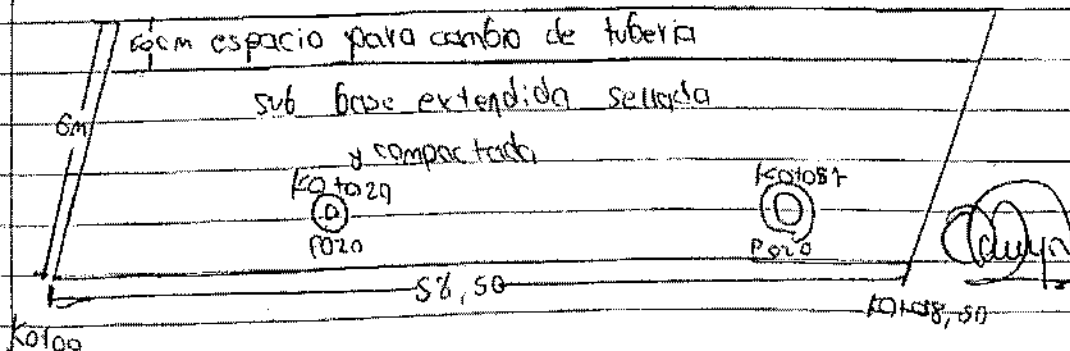 60cm espacio para cambio de tuberia
sub base extendida sellada
6m
y compactada
K0+029
K0+057
pozo
Pozo
58,50
K0+058,50
K0+00